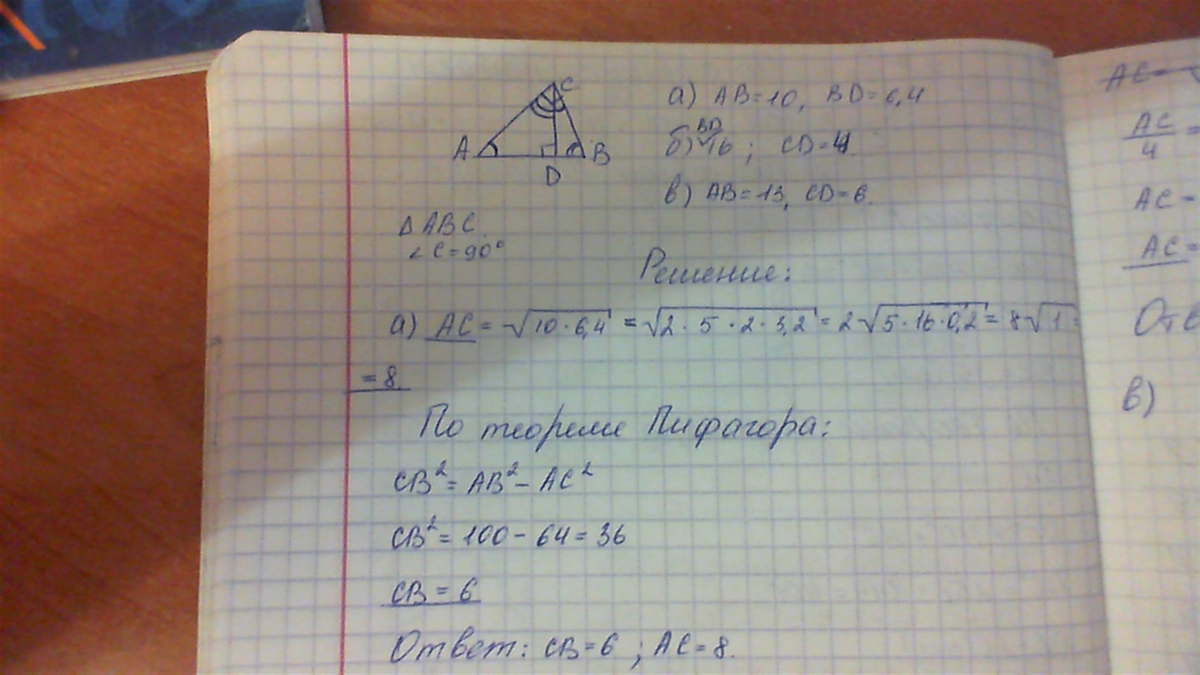 C
A
B
D
а) AB=10, BD=6,4
BD
б) 16 ; CD=4.
в) AB=13, CD=6.
ΔABC.
∠C=90°
Решение:
а) AC = √10·6,4 = √2·5·2·3,2 = 2√5·16·0,2 = 8√1 =
= 8
По теореме Пифагора:
CB² = AB² − AC²
CB² = 100 − 64 = 36
CB = 6
Ответ: CB=6 ; AC=8.
AC=
AC
4
=
AC =
AC =
Отв
в)